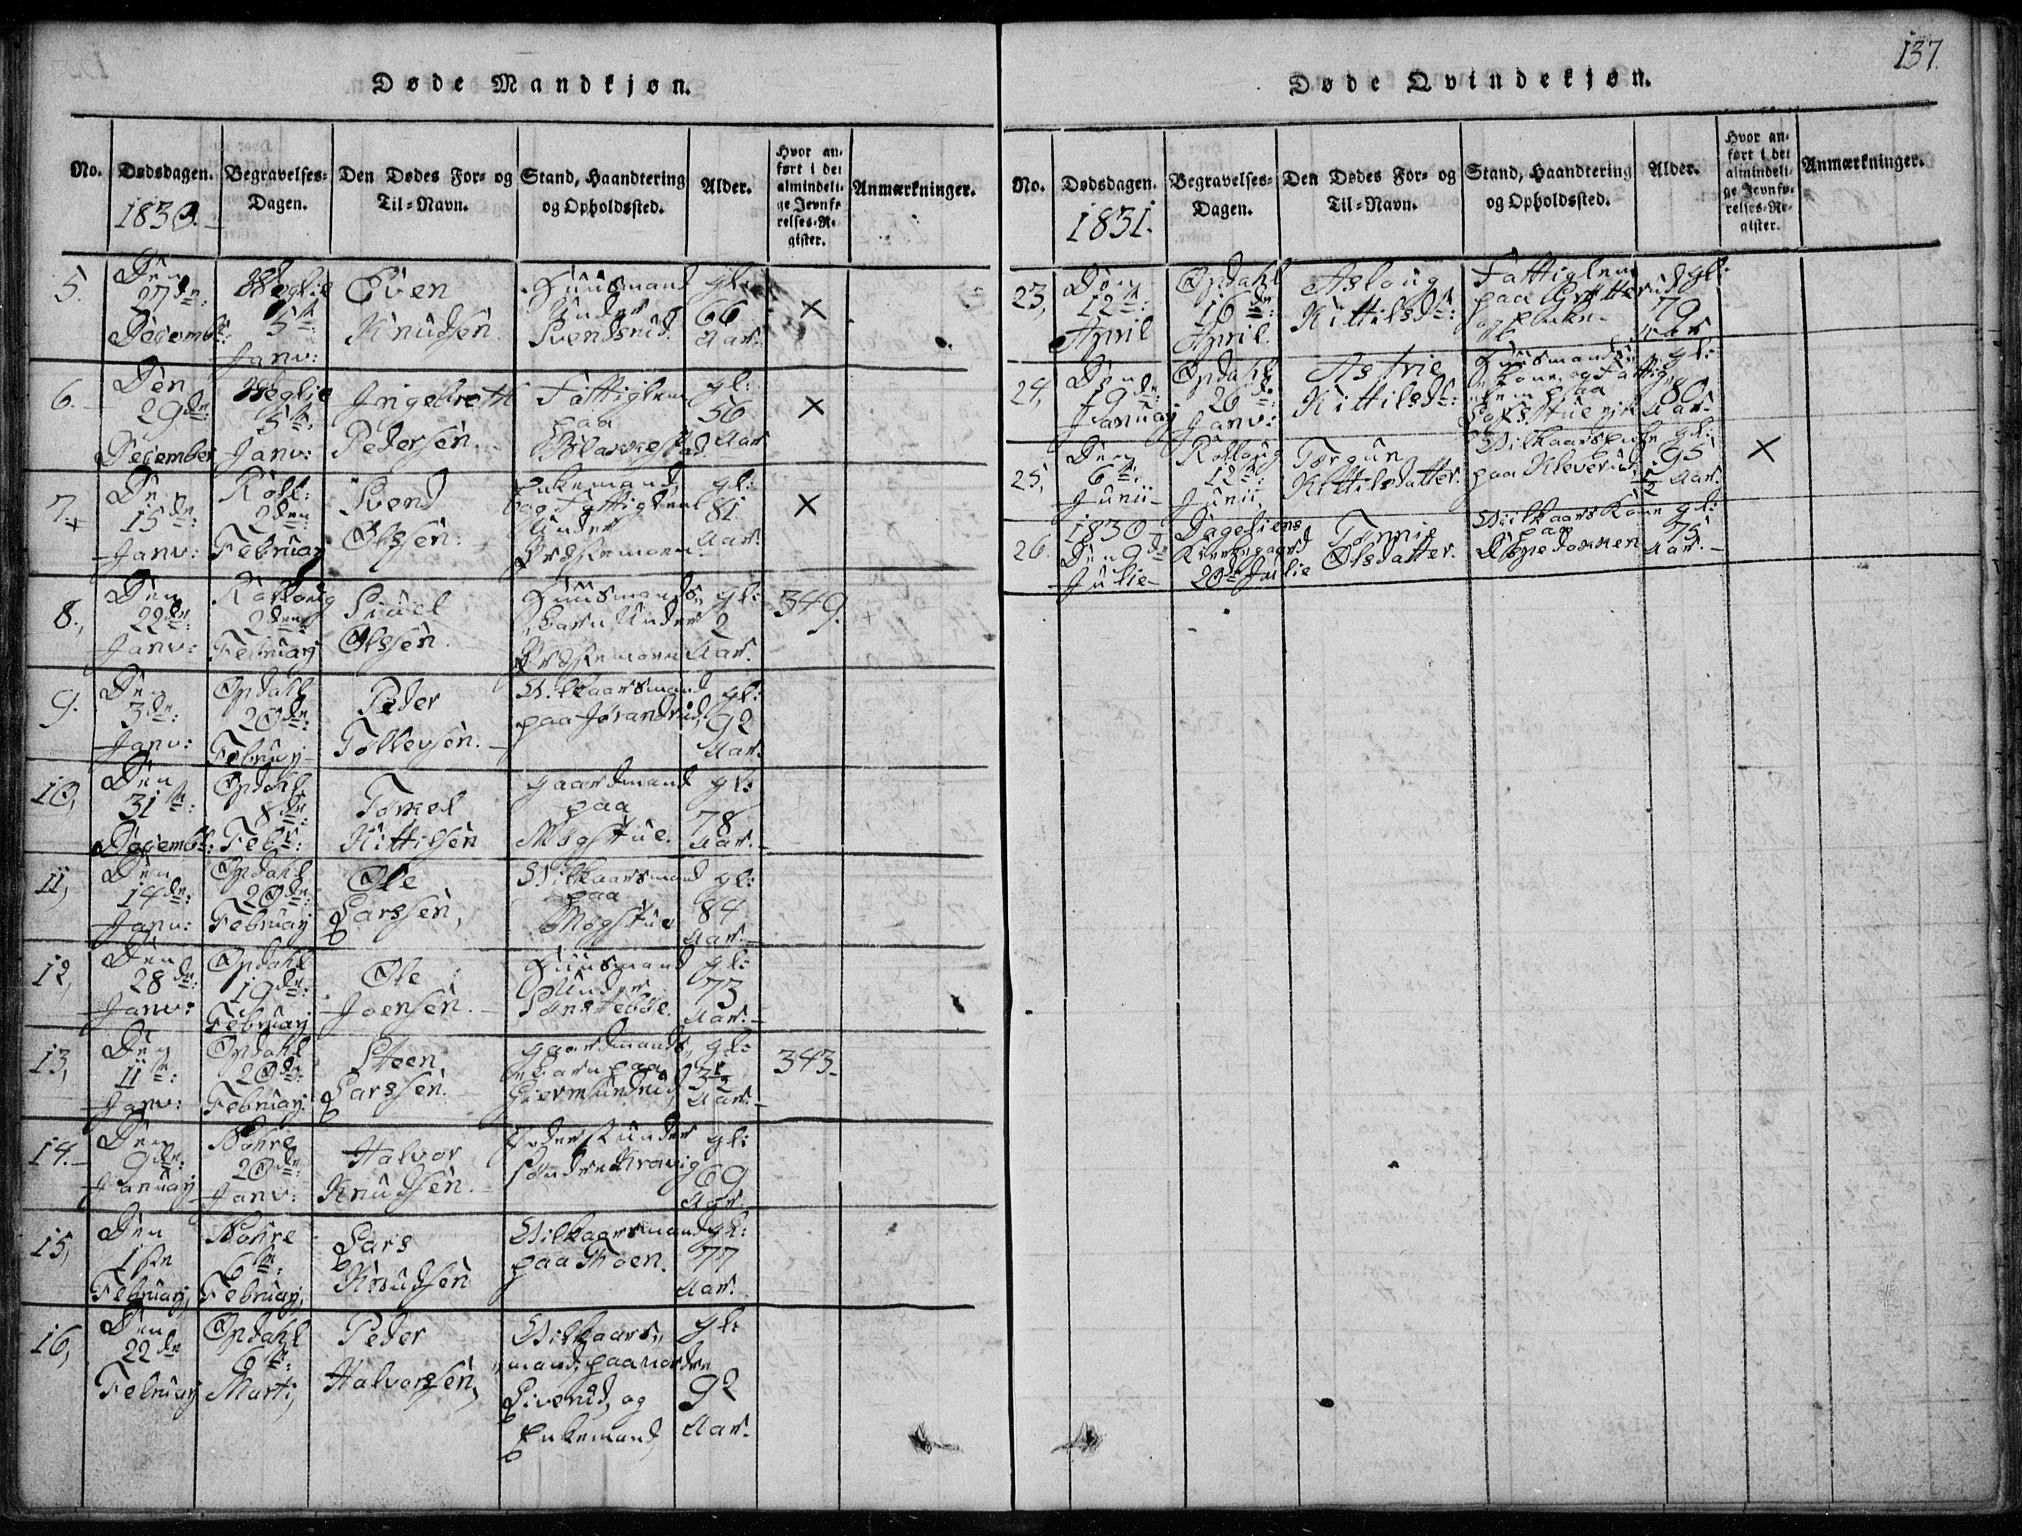 137.
Døde Mandkjøn.
No.
Dødsdagen.
1830.
Begravelses-
Dagen.
Den Dødes For- og
Til-Navn.
Stand, Haandtering
og Opholdssted.
Alder.
Hvor an-
ført i det
almindeli-
ge Jevnfø-
relses-Re-
gister.
Anmærkninger.
5.
Den
27de:
Decembr:
Veglie
5te:
Janv:
Even
Knudsen
Huusmand
Under
Svendsrud
gl:
66
Aar.
×
6.
Den
29de:
December
Veglie
5te:
Janv:
Ingebreth
Pedersen.
Fattiglem
paa
gl:
56
Aar
×
7.
Den
15de:
Janv:
Roll:
2den:
February
Svend
Olssen.
Enkemand
og Fattiglem
Under
Brdskemoen
gl:
81
Aar.
×
8.,
Den
22de:
Janv:
Rolloug
2den:
February
Siuel
Olssen.
Huusmands
barn Under
Brdskemoen
gl:
2
Aar.
349.
9.
Den
3de:
Janv:
Opdahl
20de:
February
Peder
Tollevsen.
Vilkaarsmand
paa Jørandrud,
gl:
92
Aar.
10,
Den
31te:
Decembr:
Opdahl
8de
Febr:
Tomel
Kittilsen
Gaardmand
paa
Mogstue.
gl:
78
Aar.
11,
Den
14de:
Janv:
Opdahl
20de:
February
Ole
Larssen,
Vilkaarsmand
paa
Mogstue
gl:
84
Aar.
12,
Den
28de:
Janv:
Opdahl
19de:
February
Ole
Joensen.
Huusmand
Under
Sønstebøe.
gl:
73
Aar.
13,
Den
11te:
Janv:
Opdahl
20de:
February.
Steen
Larssen.
Gaardmands
barn paa
Giermundrud
gl:
3 1/2
Aar.
343.
14.
Den
9de:
January
Nohre
20de:
Janv:
Halvor
Knudsen.
Inderst Under
søndre Kravig
gl:
69
Aar
15,
Den
1ste
February,
Nohre
6te:
February,
Lars
Knudsen
Vilkaarsmand
paa Thoen.
gl:
77
Aar.
16,
Den
22de
February
Opdahl
6te:
Marti,
Peder
Halvorssen,
Vilkaars
mand, paa nordre
Liverud, og
Enkemand
gl:
92
Aar.
Døde Qvindekjøn.
No.
Dødsdagen.
1831.
Begravelses-
Dagen.
Den Dødes For- og
Til-Navn.
Stand, Haandtering
og Opholdssted.
Alder.
Hvor an-
ført i det
almindeli-
ge Jevnfø-
relses-Re-
gister.
Anmærkninger.
23,
Den
12te:
April
Opdahl
16de:
April.
Aslaug
Kittilsdr:
Fattiglem
paa
og Enke
gl:
79
Aar
24,
Den
19de:
January
Opdahl
26de:
Janv:
Astrie
Kittilsdr:
Huusmands
Kone og Fattig
lem paa
gl:
80
Aar.
25,
Den
6te:
Junii
Rolloug
12te:
Junii,
Torgun
Kittilsdatter.
Vilkaarsenke
paa Kleverud.
gl:
95
1/2 Aar.
×
26.
1830
Den 9de
Julie
Dagaliens
Kirkegaard
20de Julie
Tonnie
Olsdatter.
Vilkaars Kone
paa
gl:
75
Aar.